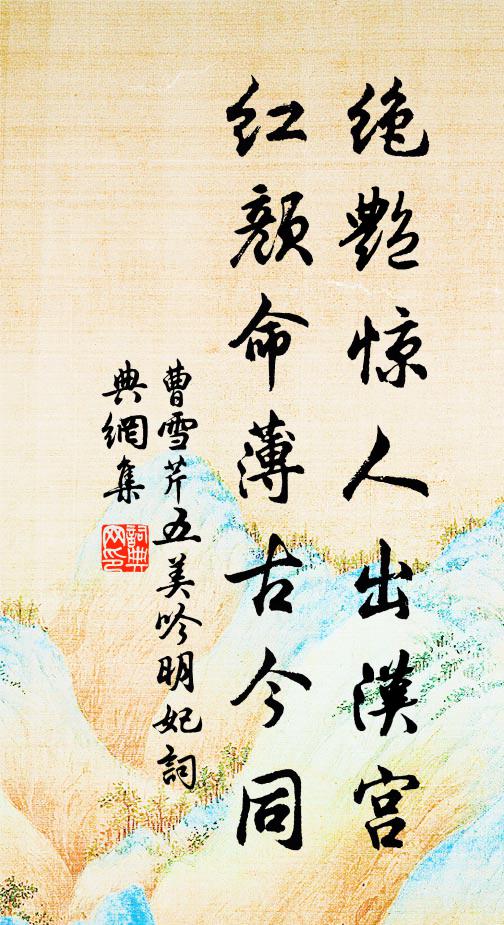 绝艳惊人出汉宫
红颜命薄古今同
曹雪芹五美吟明妃詞
典網集
詞典
网印